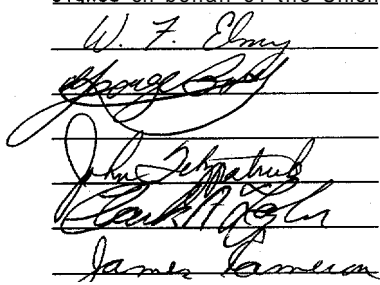 Signed on behalf of the Union
W. F. Elmy
George
John Fitzpatrick
Clark
James Cameron